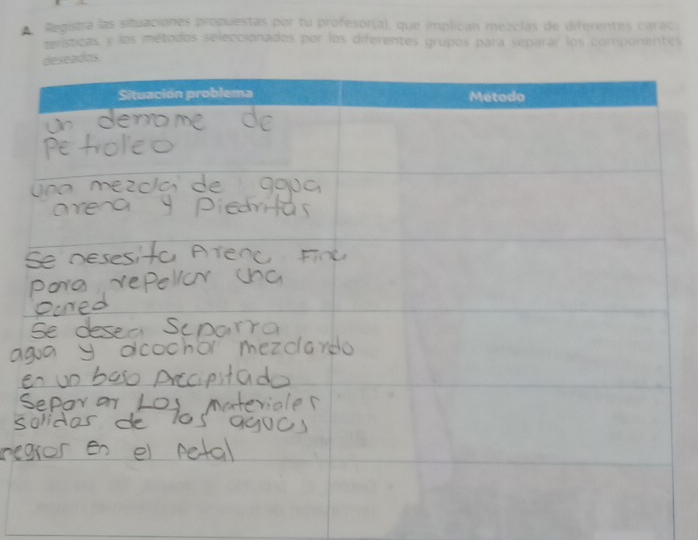 A. Registra las situaciones propuestas por tu profesor(a), que implican mezclas de diferentes carac-
terísticas y los métodos seleccionados por los diferentes grupos para separar los componentes
deseados.
Situación problema
Método
un derrome de
Petroleo
una mezcla de agua
arena y Piedritas
Se nesesita Arena Fina
para repellar una
pared
Se desea Separra
agua y alcohol mezclando
en un baso Precipitado
Separar Los materiales
solidos de los aguas
negras en el Petal